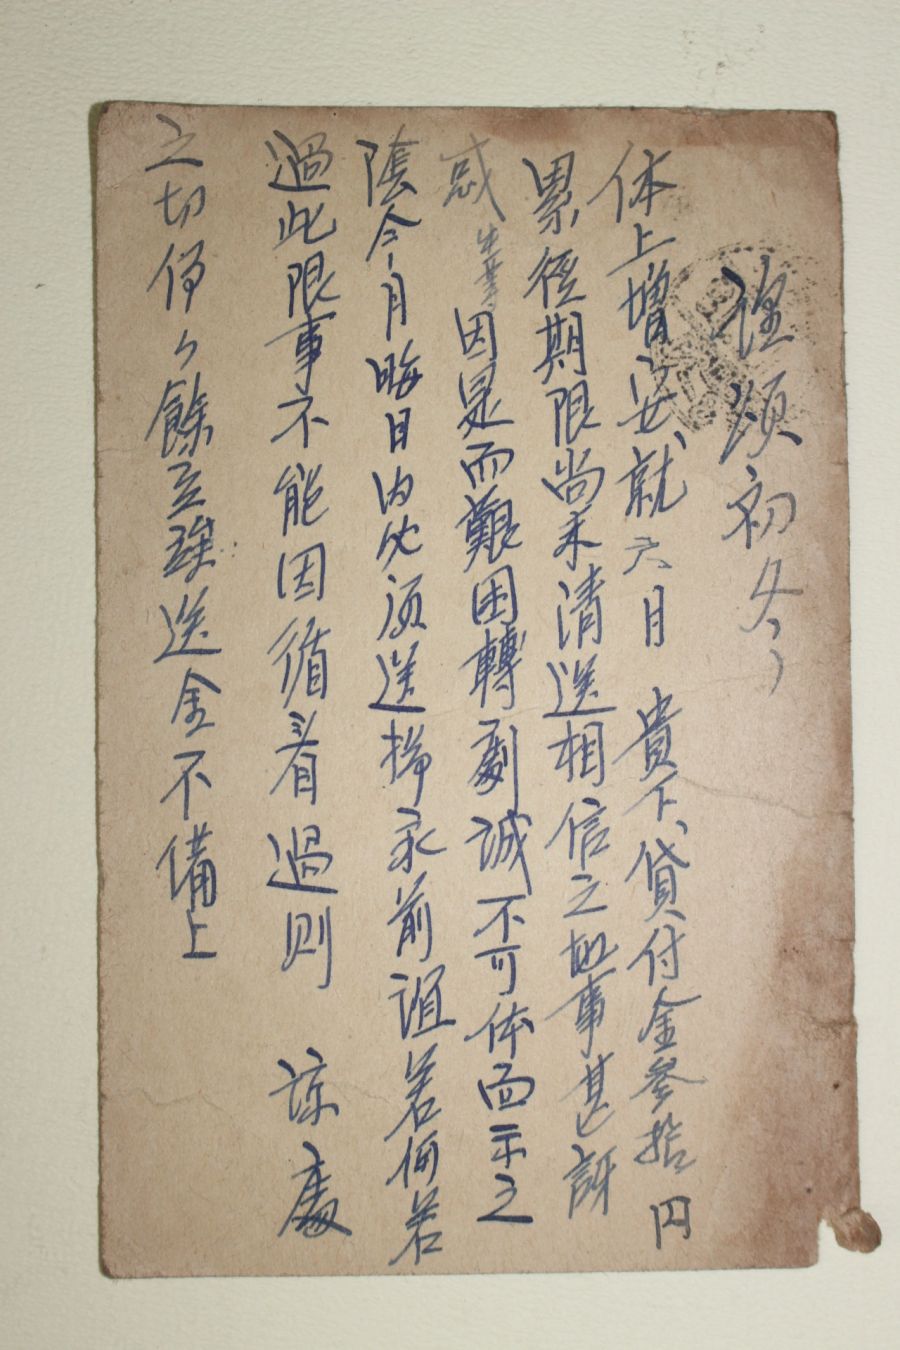 謹頌初冬
体上增安就六日 貴下貸付金參拾円
累経期限尚未清送相信之地事甚訝
惑生等因是而艱困轉劇誠不可体面示之
陰今月晦日内必須送掃永前誼若何若
過此限事不能因循看過則 諒處
之切仰々餘立竢送金不備上